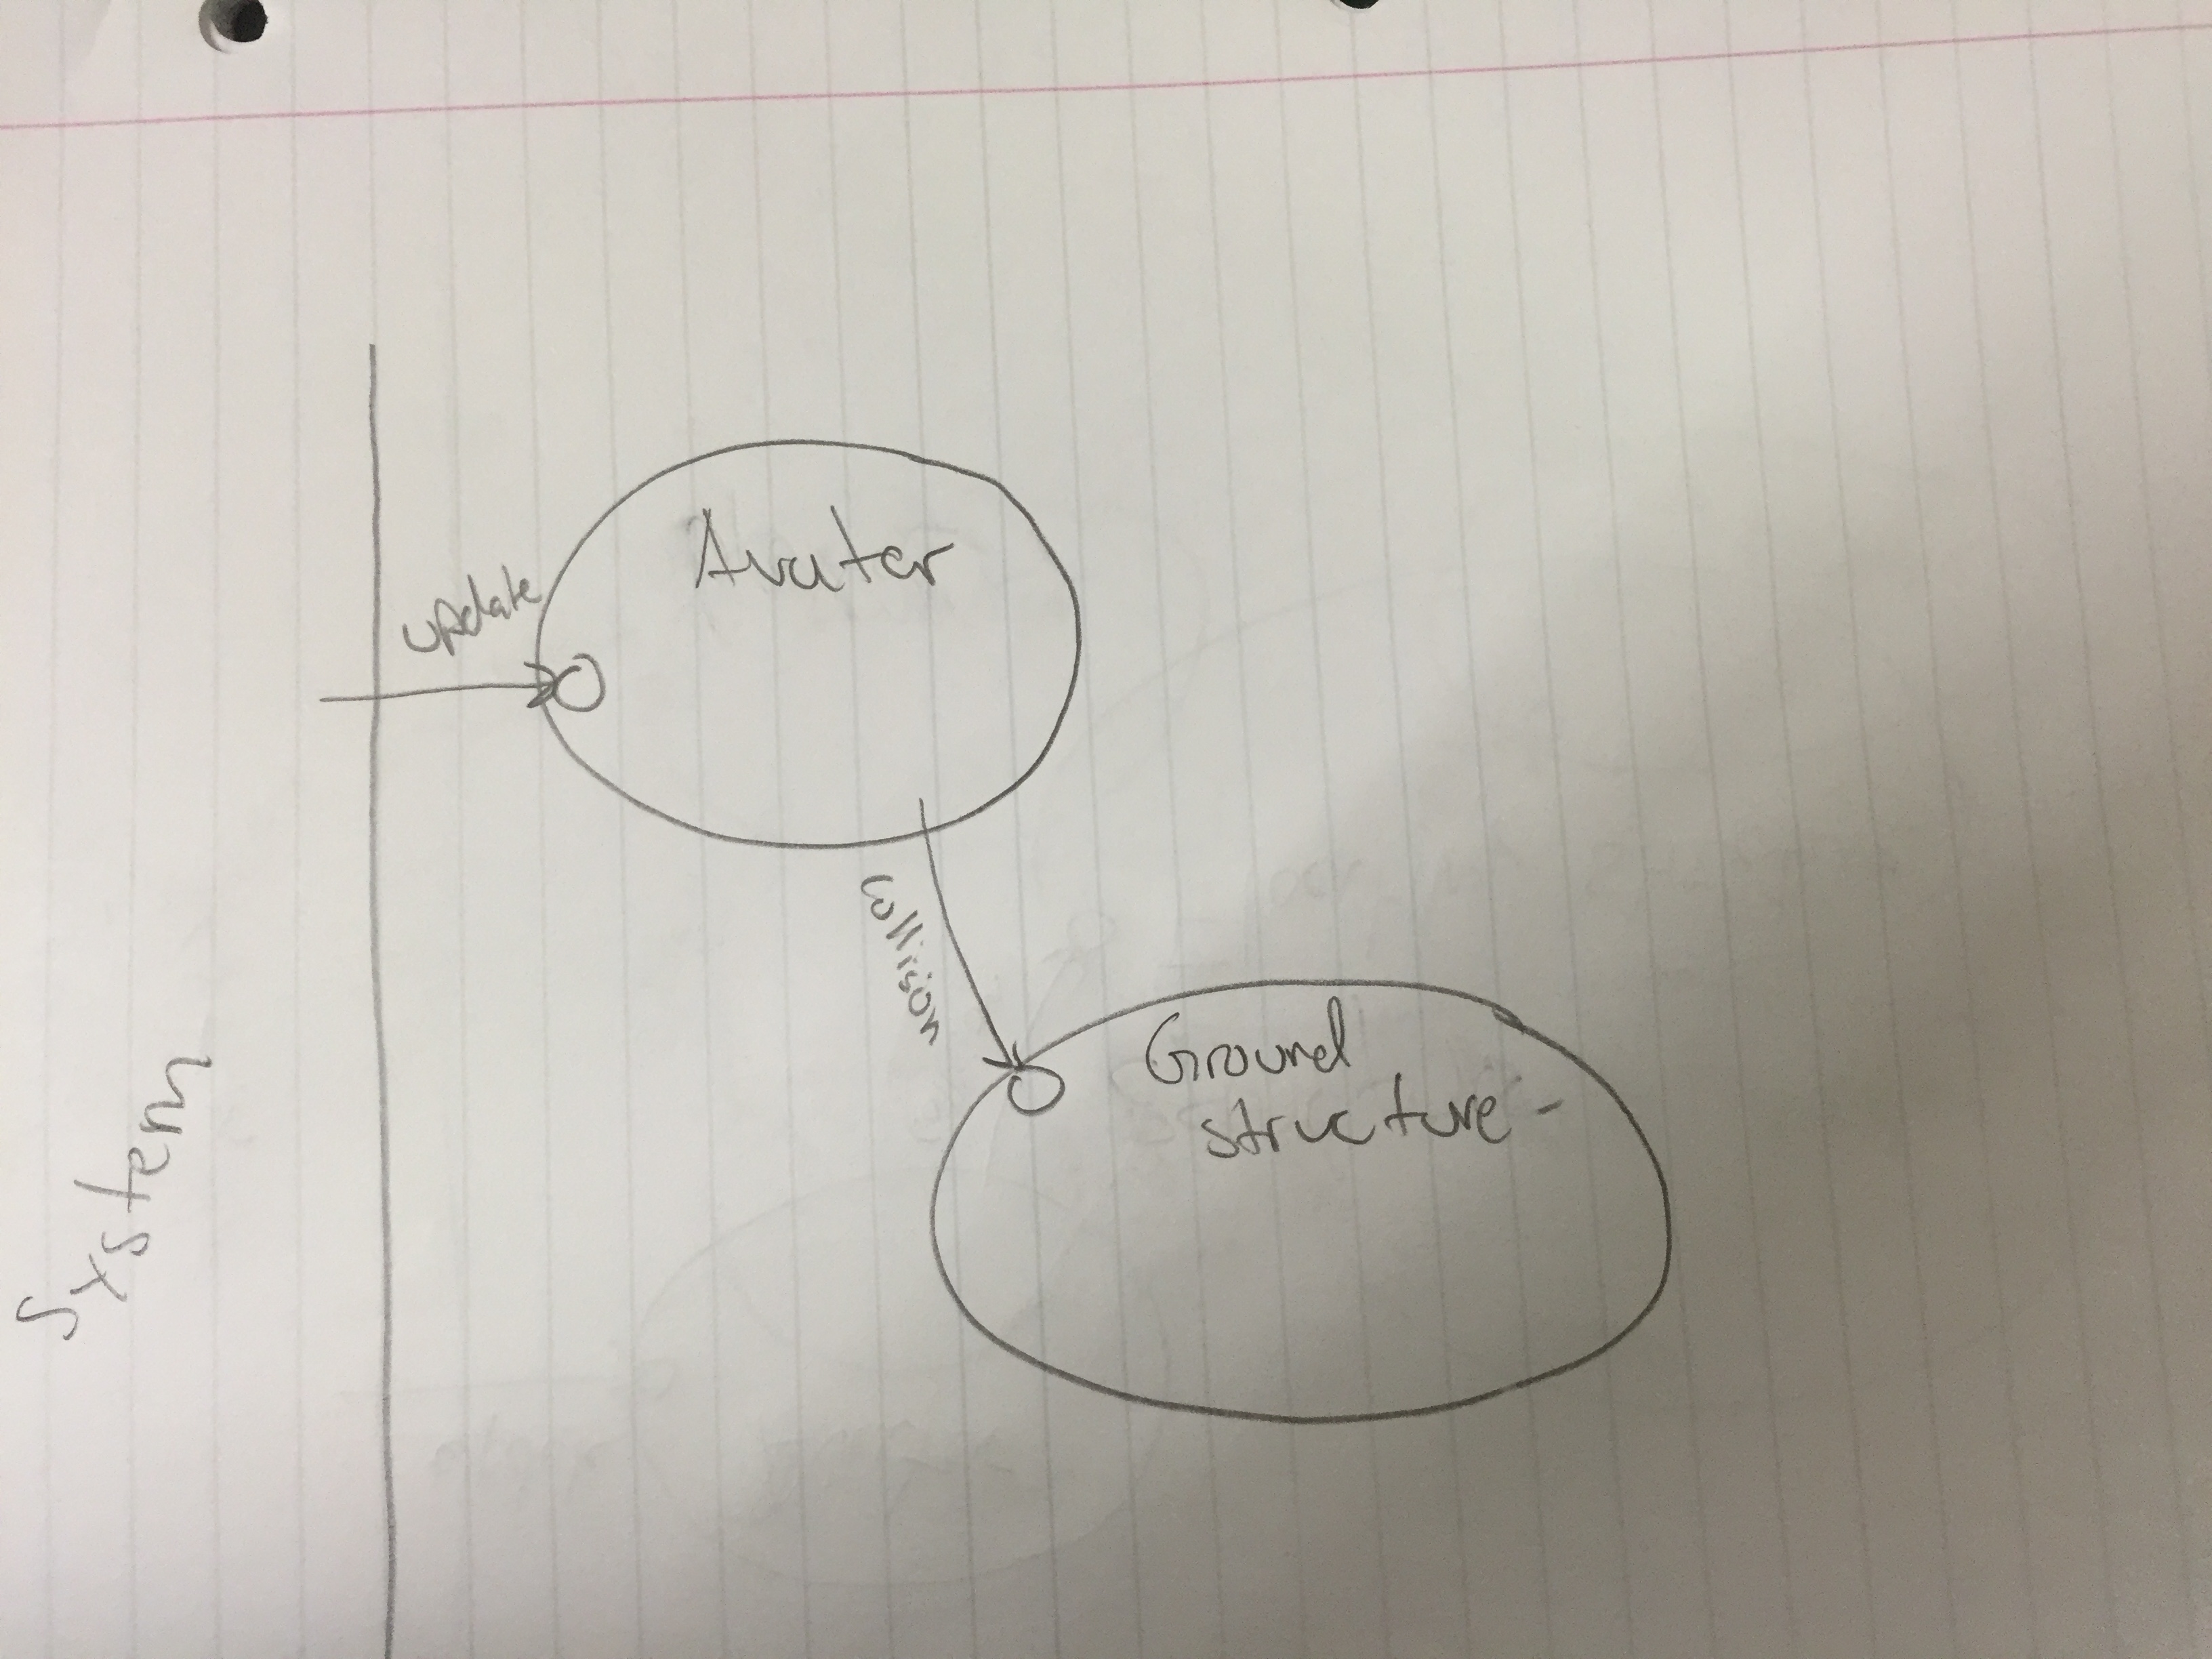 System
update
Avater
Collison
Ground
structure